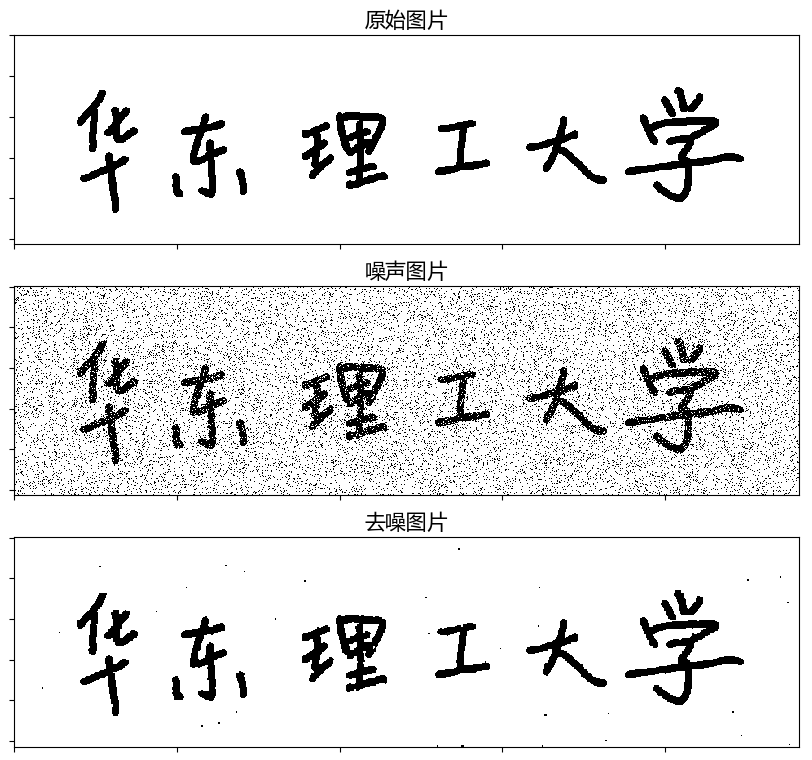 原始图片
华东理工大学
噪声图片
华东理工大学
去噪图片
华东理工大学